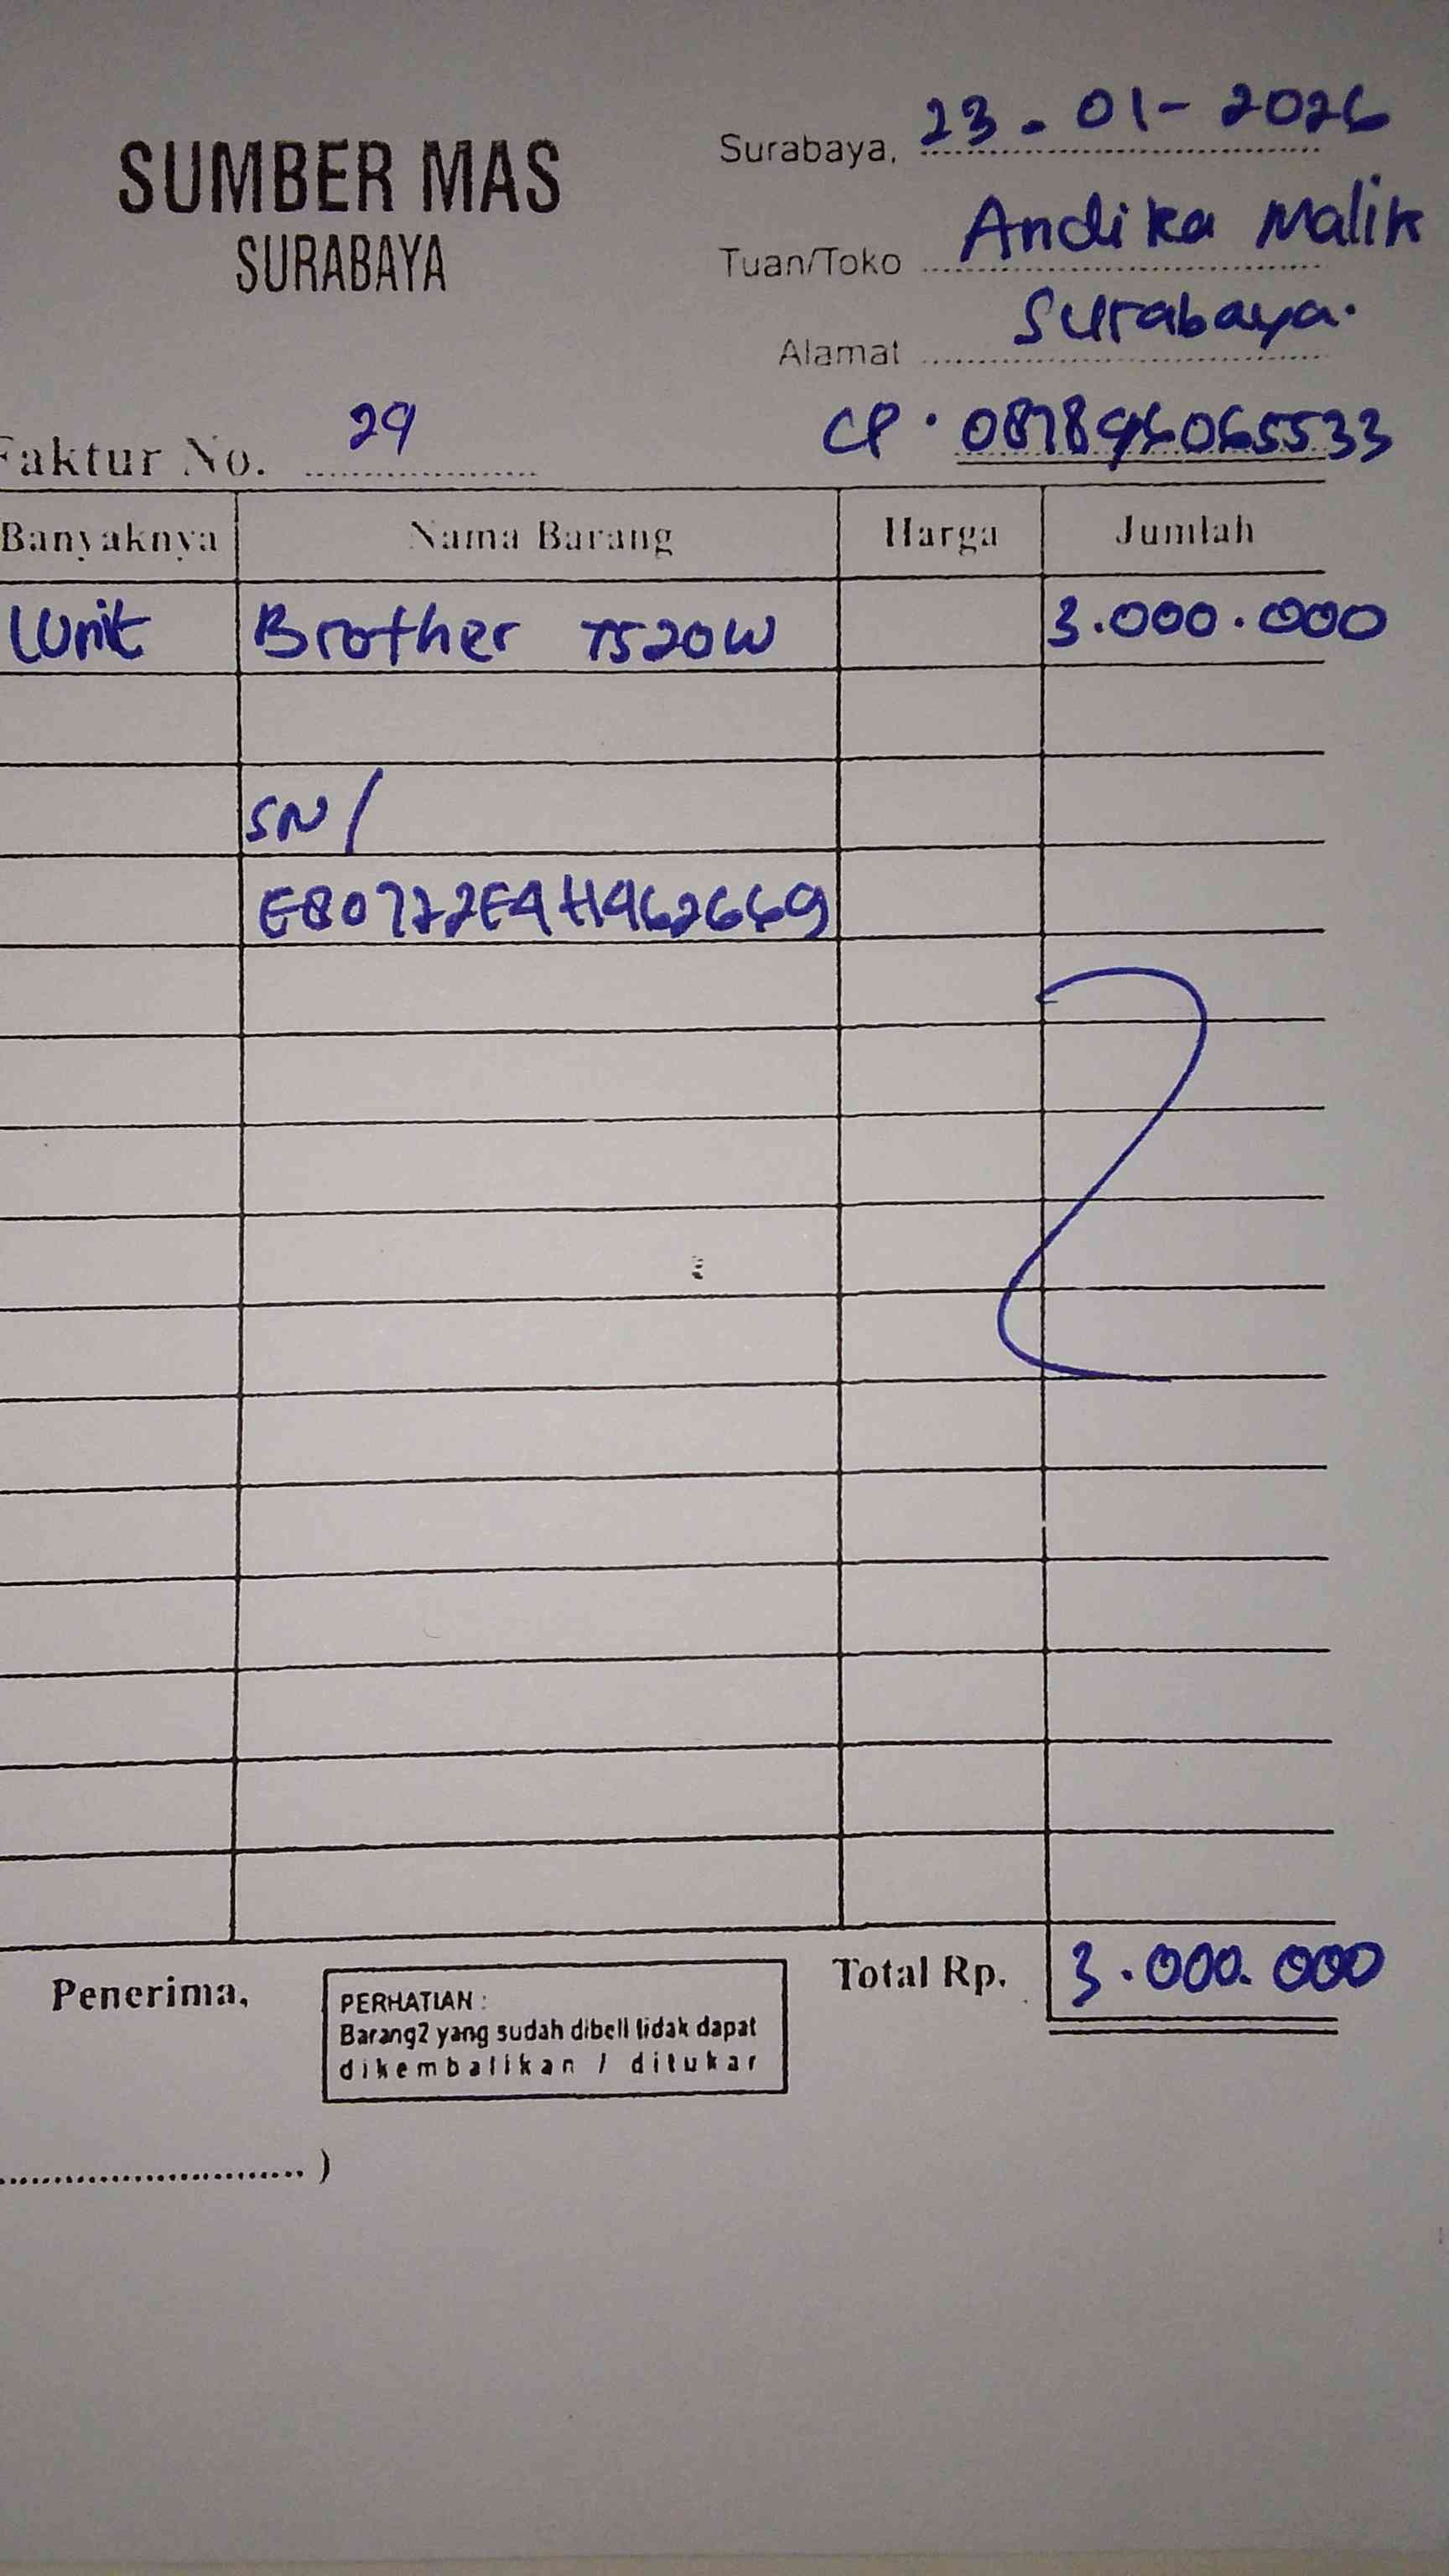 SUMBER MAS
SURABAYA
Surabaya, 23-01-2026
Tuan/Toko Andika Malik
Alamat Surabaya.
CP. 087896065533
Faktur No. 29
Banyaknya Nama Barang Harga Jumlah
1 Unit Brother T520W 3.000.000
SN/
E80772E4H462669
Total Rp. 3.000.000
Penerima,
PERHATIAN :
Barang2 yang sudah dibeli tidak dapat
dikembalikan / ditukar